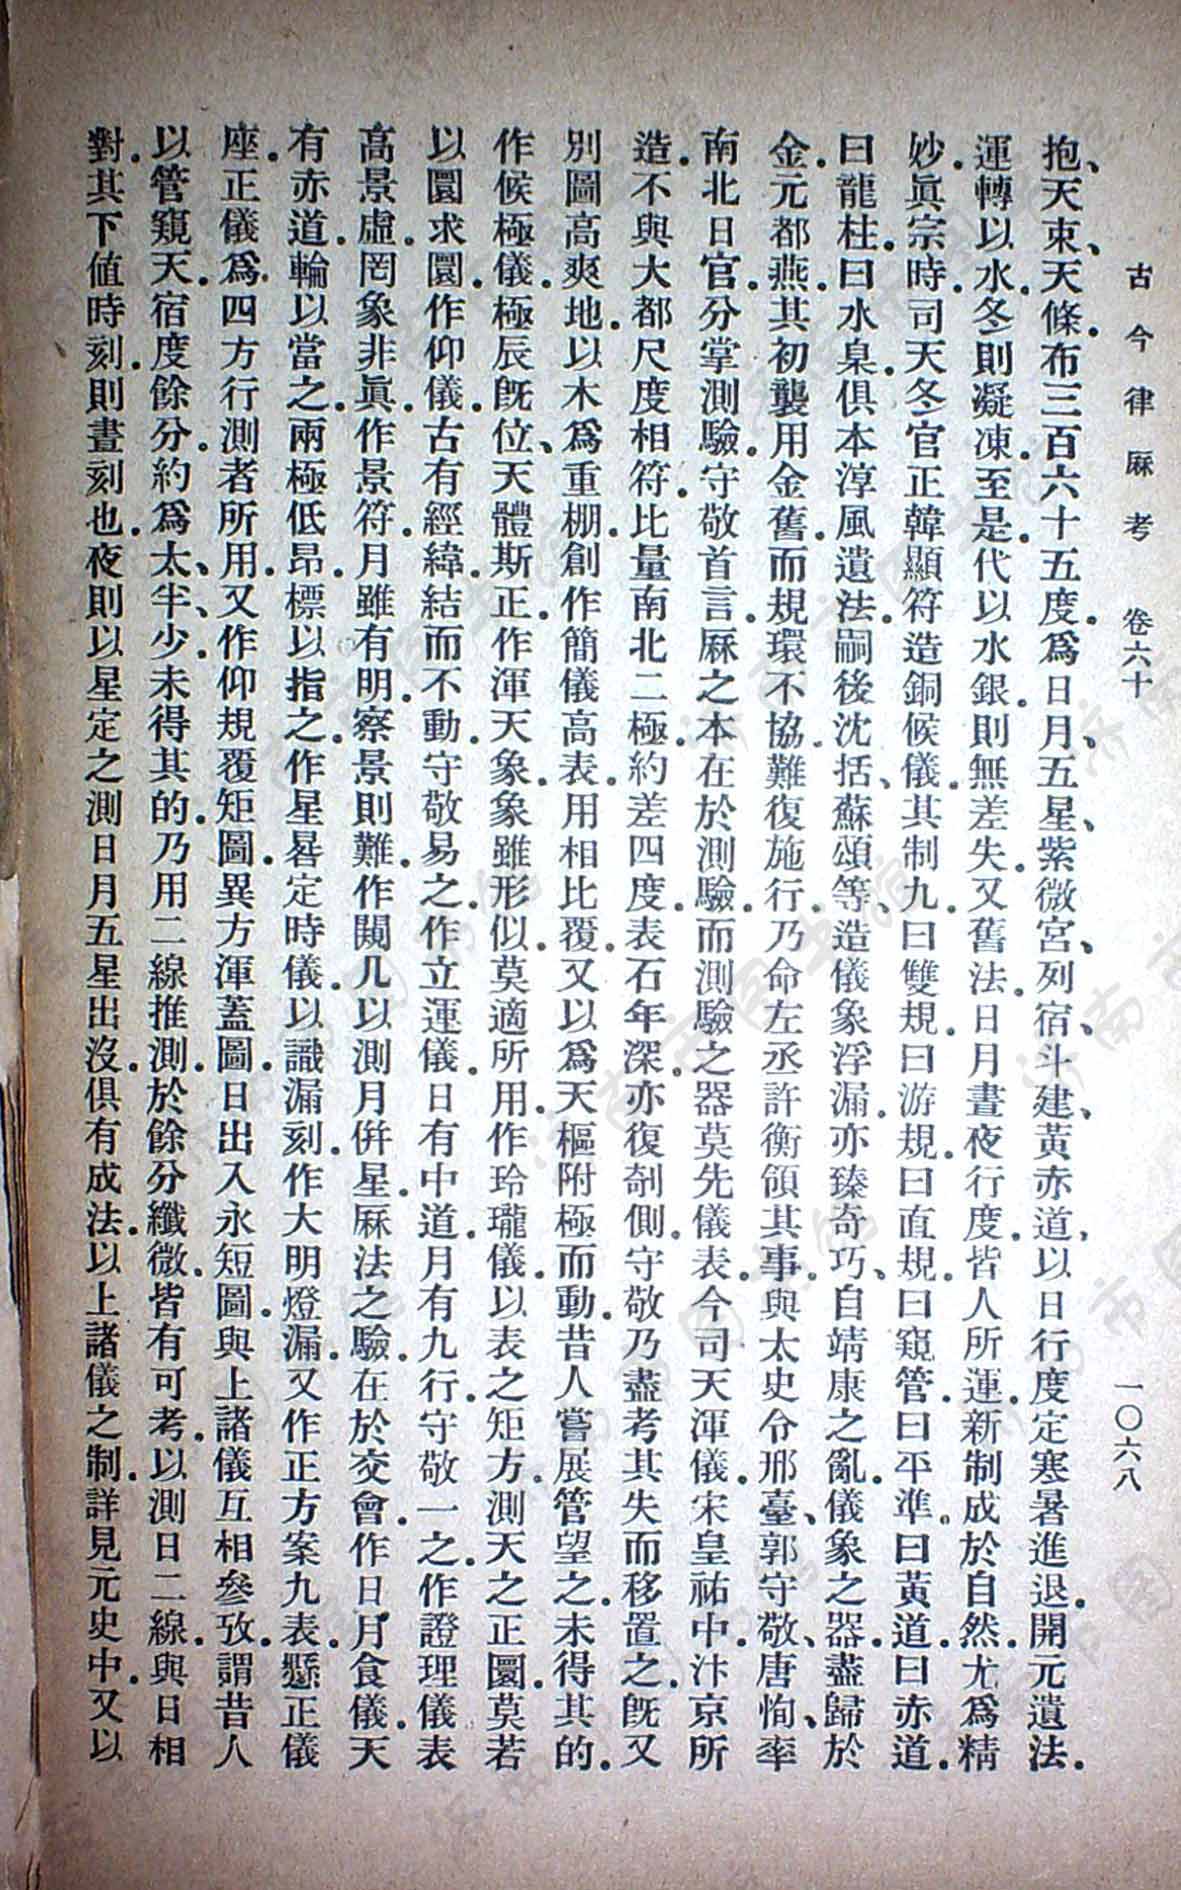 古今律厤考　卷六十　一〇六八
抱、天束、天條。布三百六十五度。爲日月、五星、紫微宮、列宿、斗建、黃赤道、以日行度定寒暑進退。開元遺法。
運轉以水。冬則凝凍。至是。代以水銀。則無差失。又舊法。日月晝夜行度。皆人所運。新制成於自然。尤爲精
妙。眞宗時。司天冬官正韓顯符造銅候儀。其制九。曰雙規。曰游規。曰直規。曰窺管。曰平準。曰黃道。曰赤道。
曰龍柱。曰水臬。俱本淳風遺法。嗣後沈括、蘇頌等、造儀象浮漏。亦臻奇巧、自靖康之亂。儀象之器。盡歸於
金。元都燕。其初襲用金舊。而規環不協。難復施行。乃命左丞許衡領其事。與太史令邢臺、郭守敬、唐恂、率
南北日官。分掌測驗。守敬首言。厤之本在於測驗。而測驗之器莫先儀表。今司天渾儀。宋皇祐中。汴京所
造。不與大都尺度相符。比量南北二極。約差四度。表石年深。亦復剞側。守敬乃盡考其失而移置之。旣又
別圖高爽地。以木爲重棚。創作簡儀高表。用相比覆。又以爲天樞附極而動。昔人嘗展管望之。未得其的。
作候極儀。極辰旣位、天體斯正。作渾天象。象雖形似。莫適所用。作玲瓏儀。以表之矩方。測天之正圜。莫若
以圜求圜。作仰儀。古有經緯。結而不動。守敬易之。作立運儀。日有中道。月有九行。守敬一之。作證理儀。表
高景虛。罔象非眞。作景符。月雖有明。察景則難。作闚几。以測月倂星。厤法之驗。在於交會。作日月食儀。天
有赤道。輪以當之。兩極低昂。標以指之。作星晷定時儀。以識漏刻。作大明燈漏。又作正方案九表。懸正儀
座。正儀爲四方行測者所用。又作仰規覆矩圖。異方渾蓋圖。日出入永短圖。與上諸儀互相參攷。謂昔人
以管窺天。宿度餘分。約爲太、半、少。未得其的。乃用二線推測。於餘分纖微。皆有可考。以測日二線。與日相
對。其下值時刻。則晝刻也。夜則以星定之測日月五星出沒。俱有成法。以上諸儀之制。詳見元史中。又以